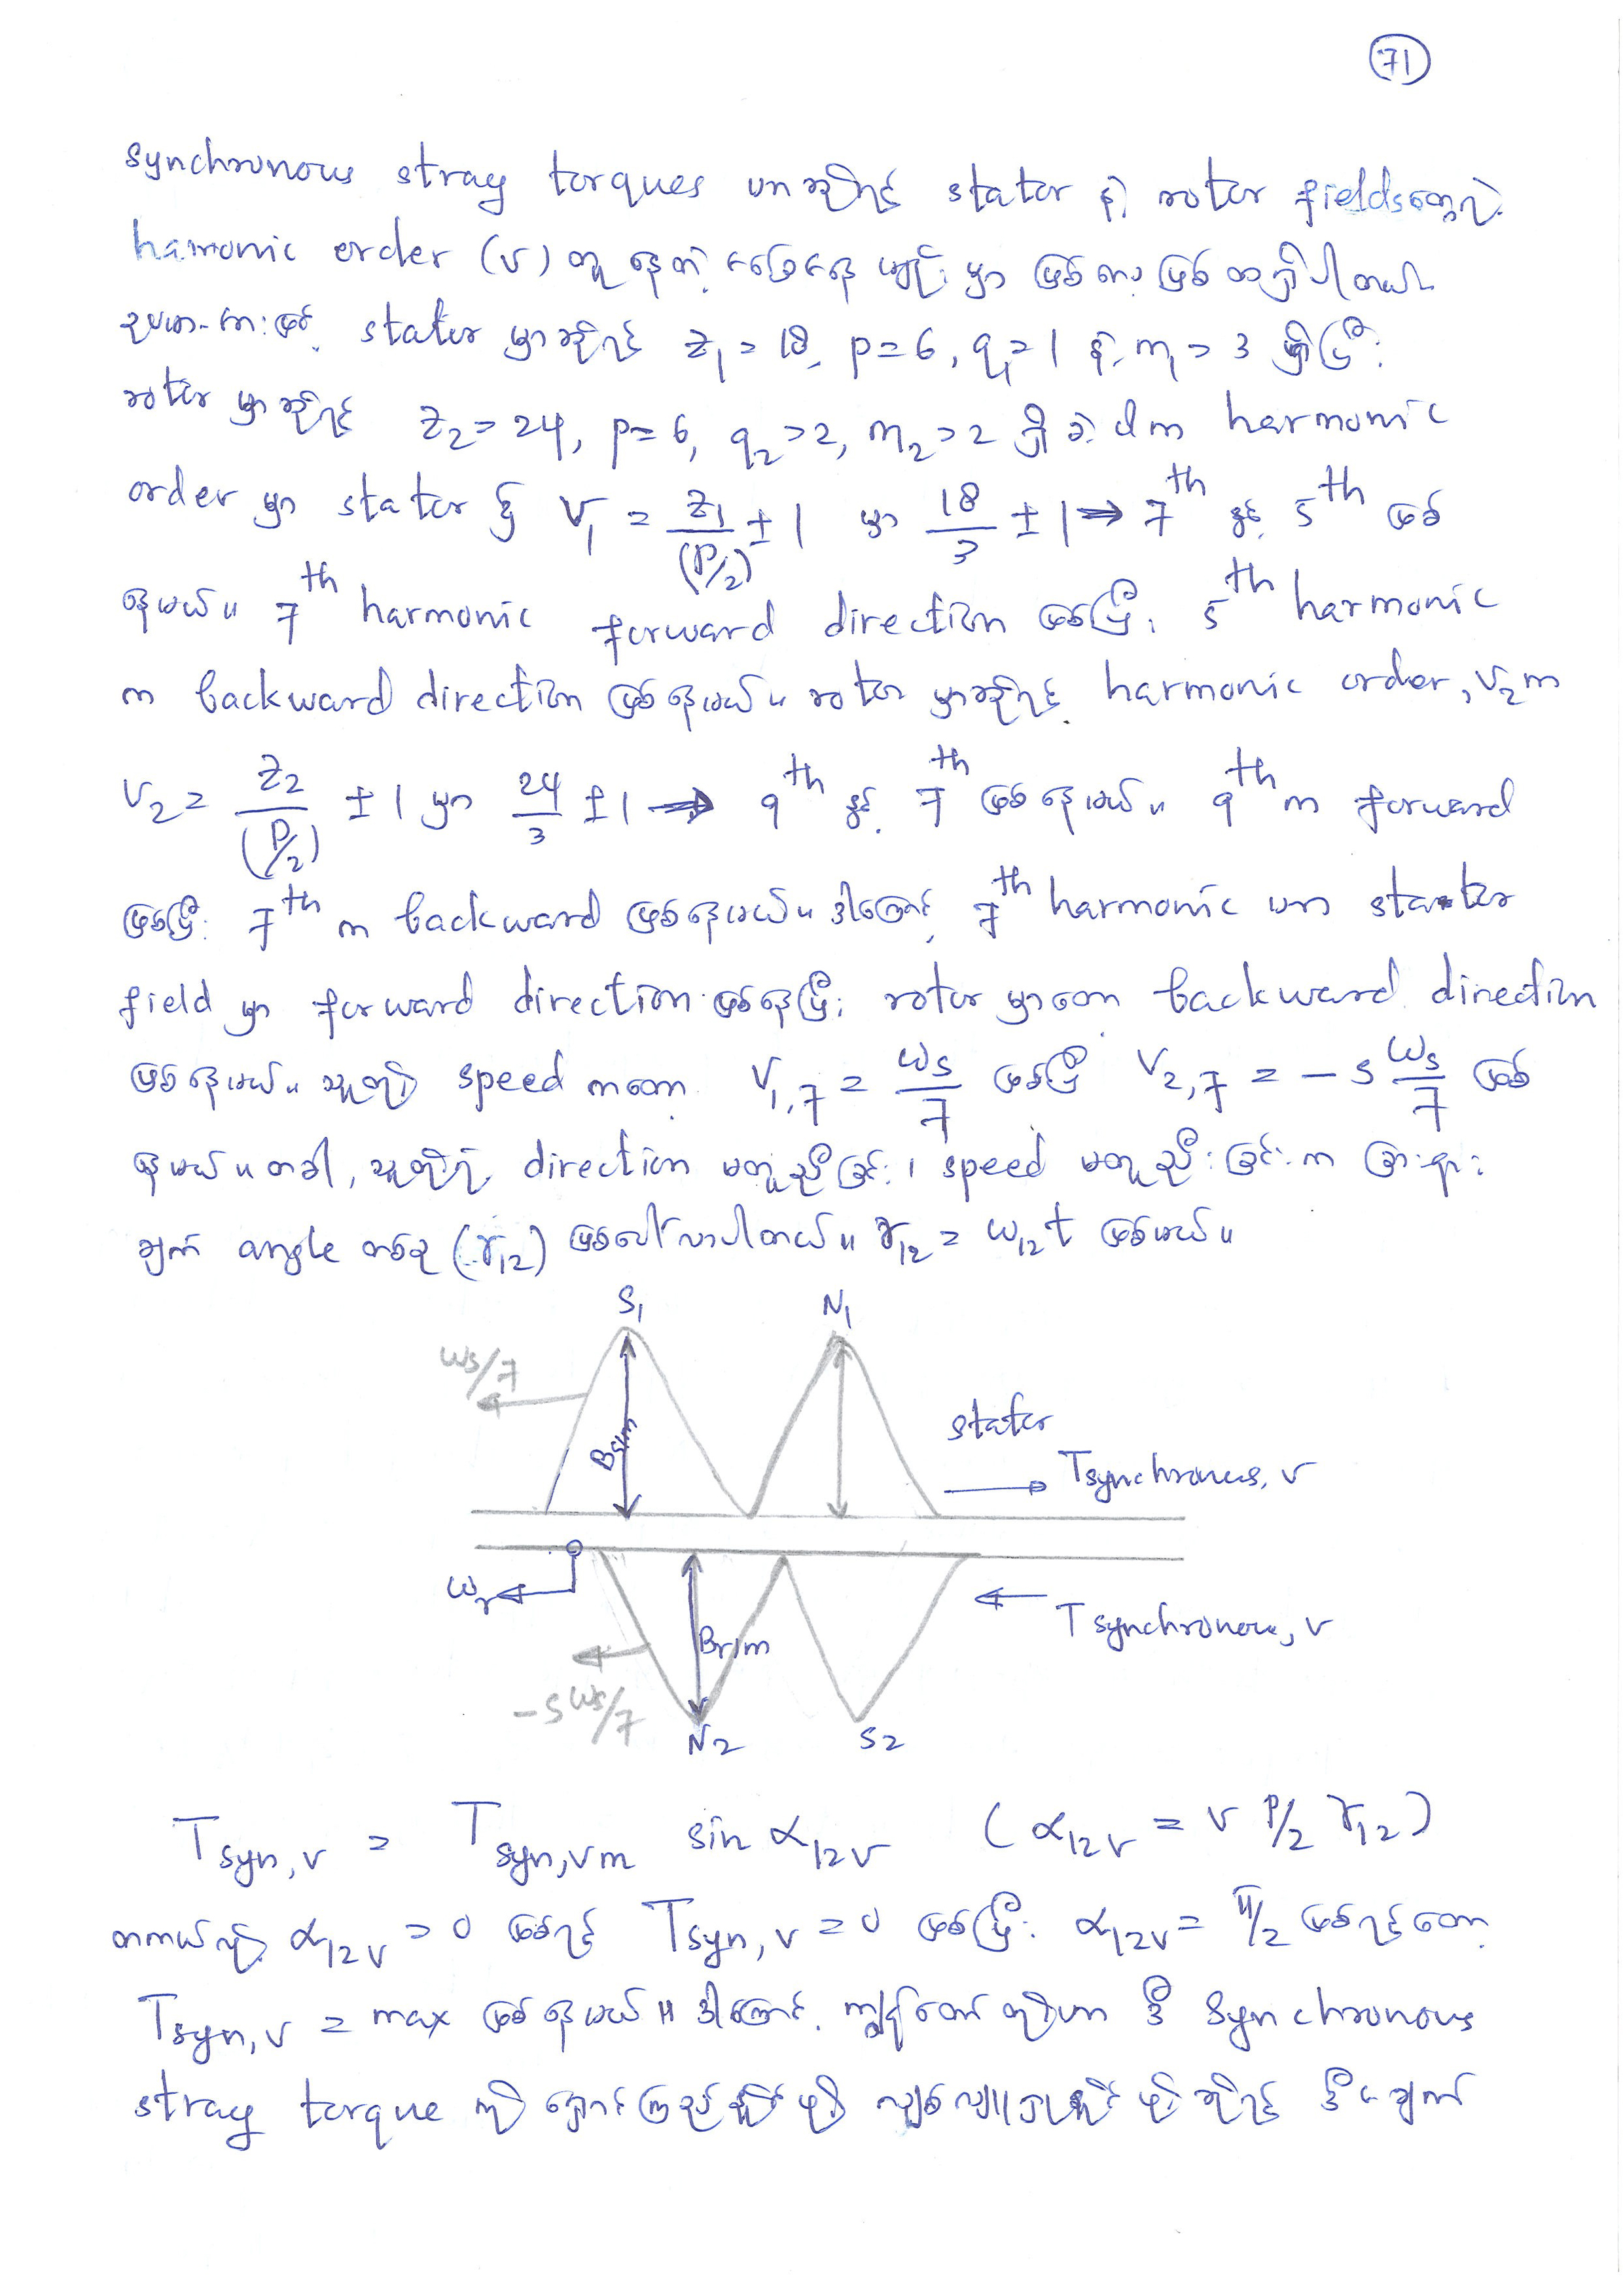 71
synchronous stray torques ဟာဆိုရင် stator နဲ့ rotor fieldsတွေရဲ့
harmonic order (v) တူနေတဲ့ အခြေအနေမျိုးမှာ ဖြစ်ပေါ်
ဥပမာ-အားဖြင့် stator မှာဆိုရင် z₁ = 18, p = 6, q₁ = 1 နဲ့ m₁ = 3 ရှိပြီး
rotor မှာဆိုရင် z₂ = 24, p = 6, q₂ = 2, m₂ = 2 ရှိခဲ့ပါက harmonic
order မှာ stator ၌ v₁ = z₁/(P/2) ± 1 မှာ 18/3 ± 1 ⇒ 7th နှင့် 5th ဖြစ်
နေမယ်။ 7th harmonic forward direction ဖြစ်ပြီး 5th harmonic
က backward direction ဖြစ်နေမယ်။ rotor မှာဆိုရင် harmonic order, v₂က
v₂ = z₂/(P/2) ± 1 မှာ 24/3 ± 1 ⇒ 9th နှင့် 7th ဖြစ်နေမယ်။ 9th က forward
ဖြစ်ပြီး 7th က backward ဖြစ်နေမယ်။ ဒါကြောင့် 7th harmonic ဟာ stator
field မှာ forward direction ဖြစ်နေပြီး rotor မှာတော့ backward direction
ဖြစ်နေမယ်။ သူတို့ speed ကတော့ V₁,₇ = ωs/7 ဖြစ်ပြီး V₂,₇ = - s ωs/7 ဖြစ်
နေမယ်။ တခါ, သူတို့ရဲ့ direction မတူညီခြင်း၊ speed မတူညီးခြင်းက ခြားနား
ချက် angle တစ်ခု (γ₁₂) ဖြစ်ပေါ်လာပါတယ်။ γ₁₂ = ω₁₂t ဖြစ်မယ်။
S₁ N₁
ωs/7
Bs1m
stator
Tsynchronous, v
ωr
Br1m
Tsynchronous, v
-s ωs/7
N₂ S₂
Tsyn,v = Tsyn,vm sin α₁₂v (α₁₂v = v P/2 γ₁₂)
တကယ်လို့ α₁₂v = 0 ဖြစ်ရင် Tsyn,v = 0 ဖြစ်ပြီး α₁₂v = π/2 ဖြစ်ရင်တော့
Tsyn,v = max ဖြစ်နေမယ်။ ဒါကြောင့် ကျွန်တော်တို့ဟာ ဒီ synchronous
stray torque ကို ရှောင်ကြဉ်နိုင်ဖို့ လျှော့ချနိုင်ဖို့ဆိုရင် ဒီအချက်